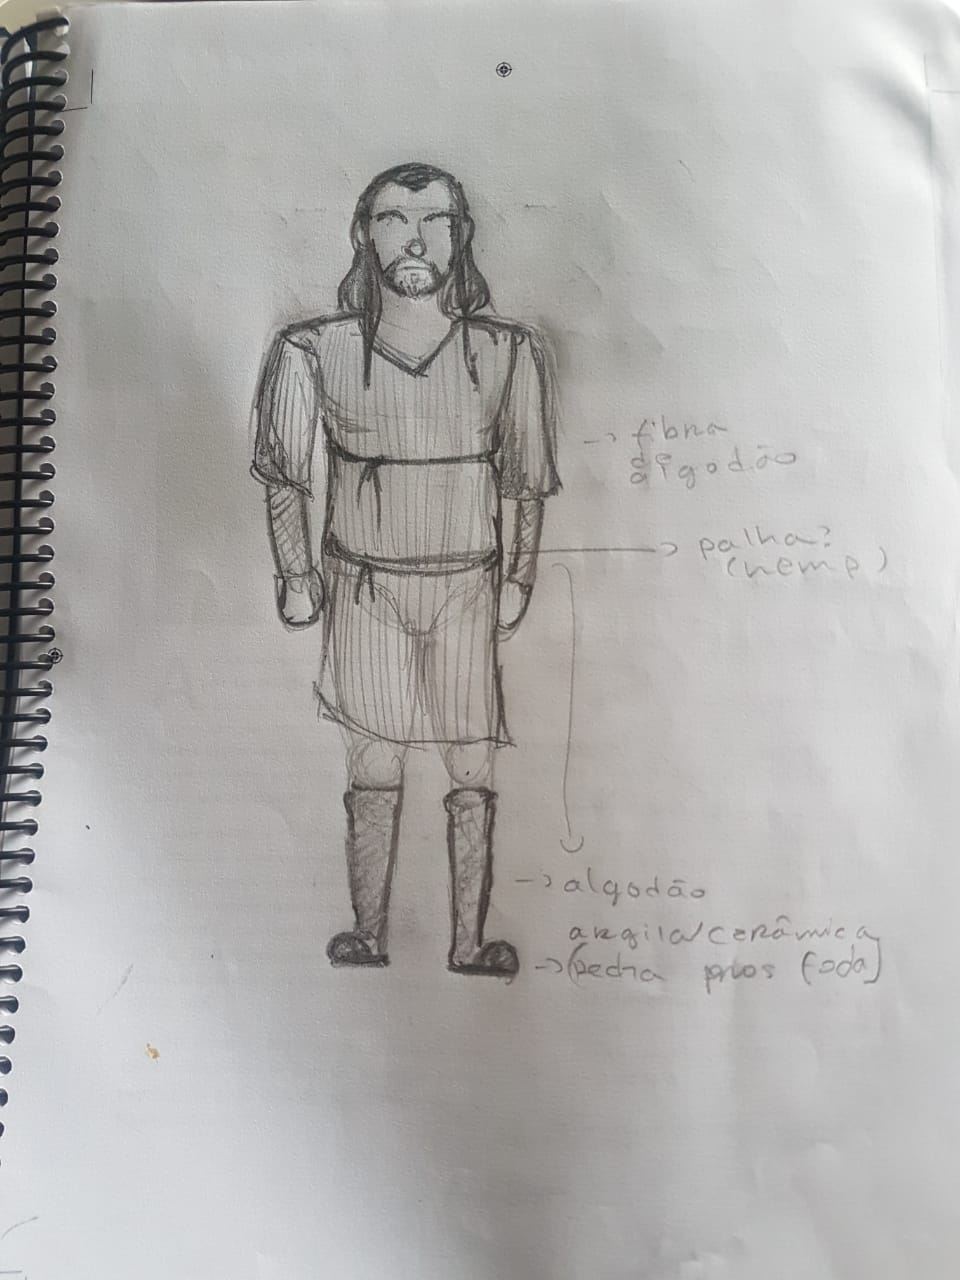 -> fibra
algodão
-> palha?
(hemp)
-> algodão
argila/cerâmica
-> (pedra pros foda)